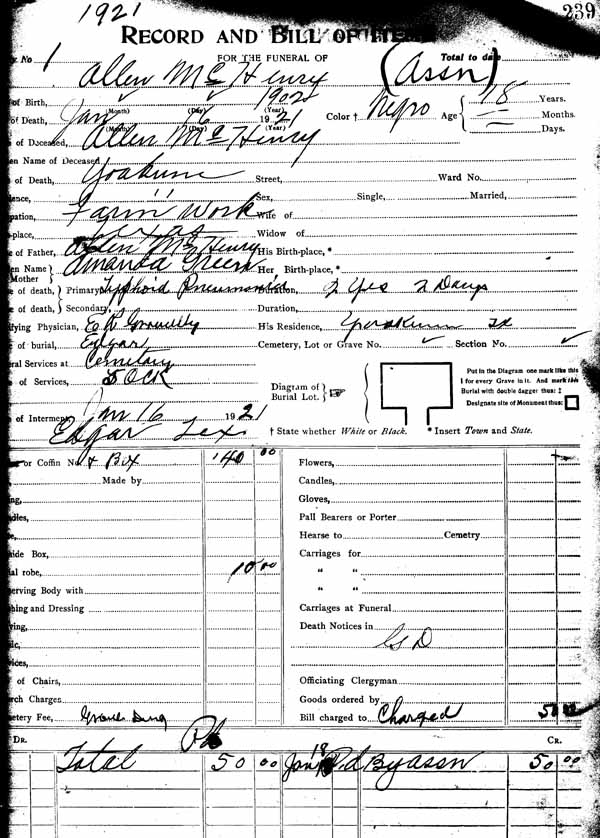 1921
239
RECORD AND BILL OF
No 1 FOR THE FUNERAL OF Total to date
Allen Mc Henry (Assn)
of Birth, 1902
(Month) (Day) (Year) Color † Negro Age { 18 Years.
of Death, Jan 16 1921 — Months.
(Month) (Day) (Year) — Days.
of Deceased, Allen Mc Henry
en Name of Deceased,
of Death, Yoakum Street, Ward No.
ence, " Sex, Single, Married,
pation, Farm Work Wife of
place, Texas Widow of
of Father, Allen Mc Henry His Birth-place, *
en Name } Amanda Green Her Birth-place, *
Mother
e of death, } Primary, Typhoid Pneumonia Duration, 2 Days
e of death, } Secondary, Duration,
fying Physician, His Residence, Yoakum Tx
e of burial, Edgar Cemetery, Lot or Grave No. ✓ Section No. ✓
eral Services at Cemetary
of Services, OCK
Diagram of } Burial Lot. ☞
Put in the Diagram one mark like this
I for every Grave in it. And mark this
Burial with double dagger thus: ‡
Designate site of Monument thus: □
of Interment, Jan 16 1921
Edgar Tex † State whether White or Black. * Insert Town and State.
or Coffin No. & Box 40 00 Flowers,
Made by Candles,
ng, Gloves,
dles, Pall Bearers or Porter
e, Hearse to Cemetry
ide Box, Carriages for
al robe, 10 00 " "
erving Body with " "
hing and Dressing Carriages at Funeral
ving, Death Notices in
ic,
vices,
of Chairs, Officiating Clergyman
rch Charges Goods ordered by
etery Fee, Grave Bill charged to Charged 50 00
DR. Pd CR.
Total 50 00 Jan 18 Pd By assn 50 00